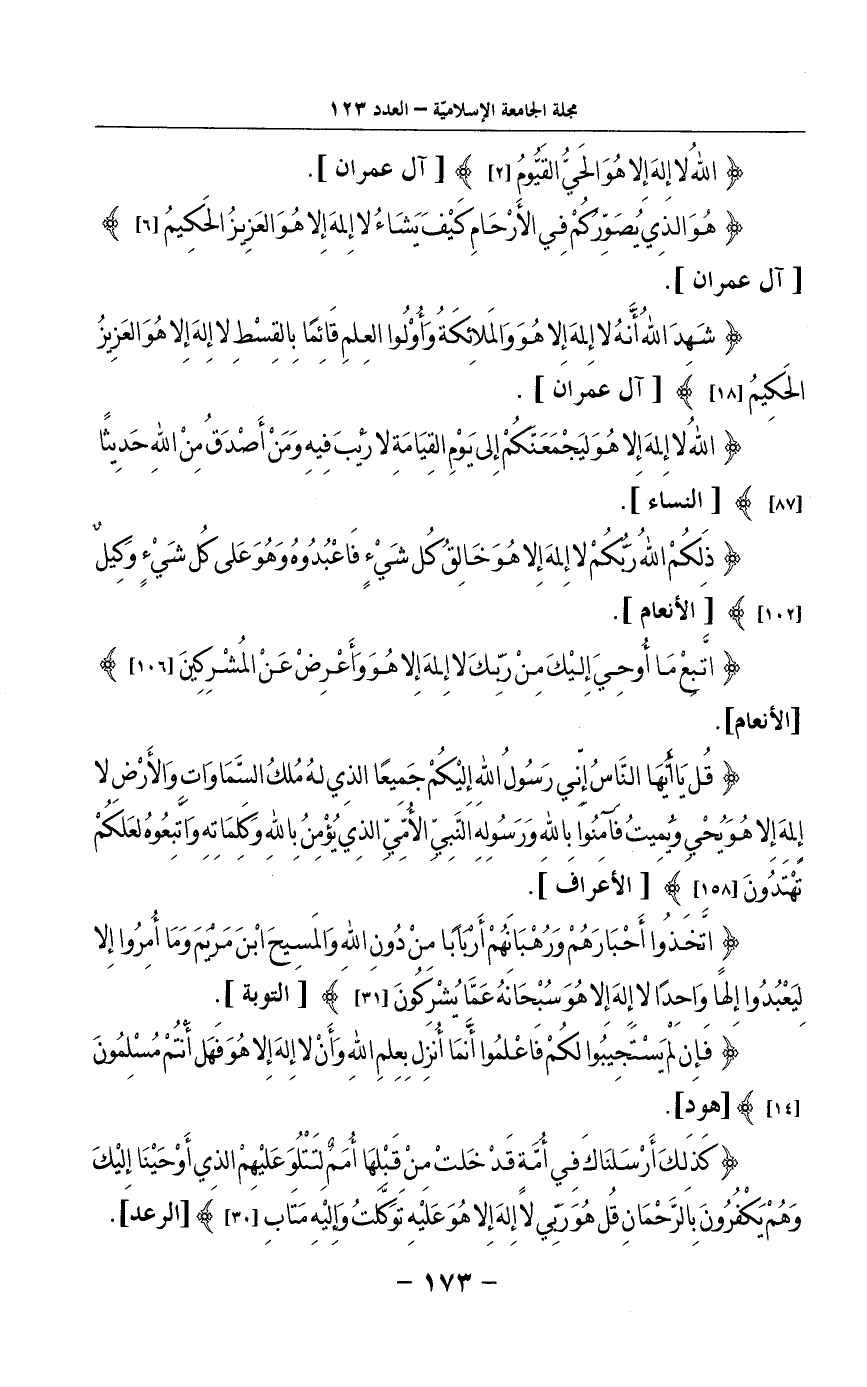 مجلة الجامعة الإسلاميّة – العدد ١٢٣
﴿ اللهُ لا إِلهَ إِلا هُوَ الحَيُّ القَيُّومُ [٢] ﴾ [ آل عمران ].
﴿ هُوَ الذِي يُصَوِّرُكُمْ فِي الأَرْحَامِ كَيْفَ يَشَاءُ لا إِلهَ إِلا هُوَ العَزِيزُ الحَكِيمُ [٦] ﴾
[ آل عمران ].
﴿ شَهِدَ اللهُ أَنَّهُ لا إِلهَ إِلا هُوَ وَالمَلائِكَةُ وَأُوْلُوا العِلمِ قَائِمًا بِالقِسْطِ لا إِلهَ إِلا هُوَ العَزِيزُ
الحَكِيمُ [١٨] ﴾ [ آل عمران ] .
﴿ اللهُ لا إِلهَ إِلا هُوَ لَيَجْمَعَنَّكُمْ إِلى يَوْمِ القِيَامَةِ لا رَيْبَ فِيهِ وَمَنْ أَصْدَقُ مِنْ اللهِ حَدِيثًا
[٨٧] ﴾ [ النساء ].
﴿ ذَلِكُمْ اللهُ رَبُّكُمْ لا إِلهَ إِلا هُوَ خَالِقُ كُل شَيْءٍ فَاعْبُدُوهُ وَهُوَ عَلى كُل شَيْءٍ وَكِيلٌ
[١٠٢] ﴾ [ الأنعام ].
﴿ اتَّبِعْ مَا أُوحِيَ إِليْكَ مِنْ رَبِّكَ لا إِلهَ إِلا هُوَ وَأَعْرِضْ عَنْ المُشْرِكِينَ [١٠٦] ﴾
[الأنعام].
﴿ قُل يَاأَيُّهَا النَّاسُ إِنِّي رَسُولُ اللهِ إِليْكُمْ جَمِيعًا الذِي لهُ مُلكُ السَّمَاوَاتِ وَالأَرْضِ لا
إِلهَ إِلا هُوَ يُحْيِ وَيُمِيتُ فَآمِنُوا بِاللهِ وَرَسُولِهِ النَّبِيِّ الأُمِّيِّ الذِي يُؤْمِنُ بِاللهِ وَكَلِمَاتِهِ وَاتَّبِعُوهُ لعَلكُمْ
تَهْتَدُونَ [١٥٨] ﴾ [ الأعراف ].
﴿ اتَّخَذُوا أَحْبَارَهُمْ وَرُهْبَانَهُمْ أَرْبَابًا مِنْ دُونِ اللهِ وَالمَسِيحَ ابْنَ مَرْيَمَ وَمَا أُمِرُوا إِلا
لِيَعْبُدُوا إِلهًا وَاحِدًا لا إِلهَ إِلا هُوَ سُبْحَانَهُ عَمَّا يُشْرِكُونَ [٣١] ﴾ [ التوبة ].
﴿ فَإِن لمْ يَسْتَجِيبُوا لكُمْ فَاعْلمُوا أَنَّمَا أُنْزِل بِعِلمِ اللهِ وَأَنْ لا إِلهَ إِلا هُوَ فَهَل أَنْتُمْ مُسْلِمُونَ
[١٤] ﴾ [هود].
﴿ كَذَلِكَ أَرْسَلنَاكَ فِي أُمَّةٍ قَدْ خَلتْ مِنْ قَبْلِهَا أُمَمٌ لتَتْلُوَ عَليْهِمْ الذِي أَوْحَيْنَا إِليْكَ
وَهُمْ يَكْفُرُونَ بِالرَّحْمَانِ قُل هُوَ رَبِّي لا إِلهَ إِلا هُوَ عَليْهِ تَوَكَّلتُ وَإِليْهِ مَتَابِ [٣٠] ﴾ [الرعد].
– ١٧٣ –